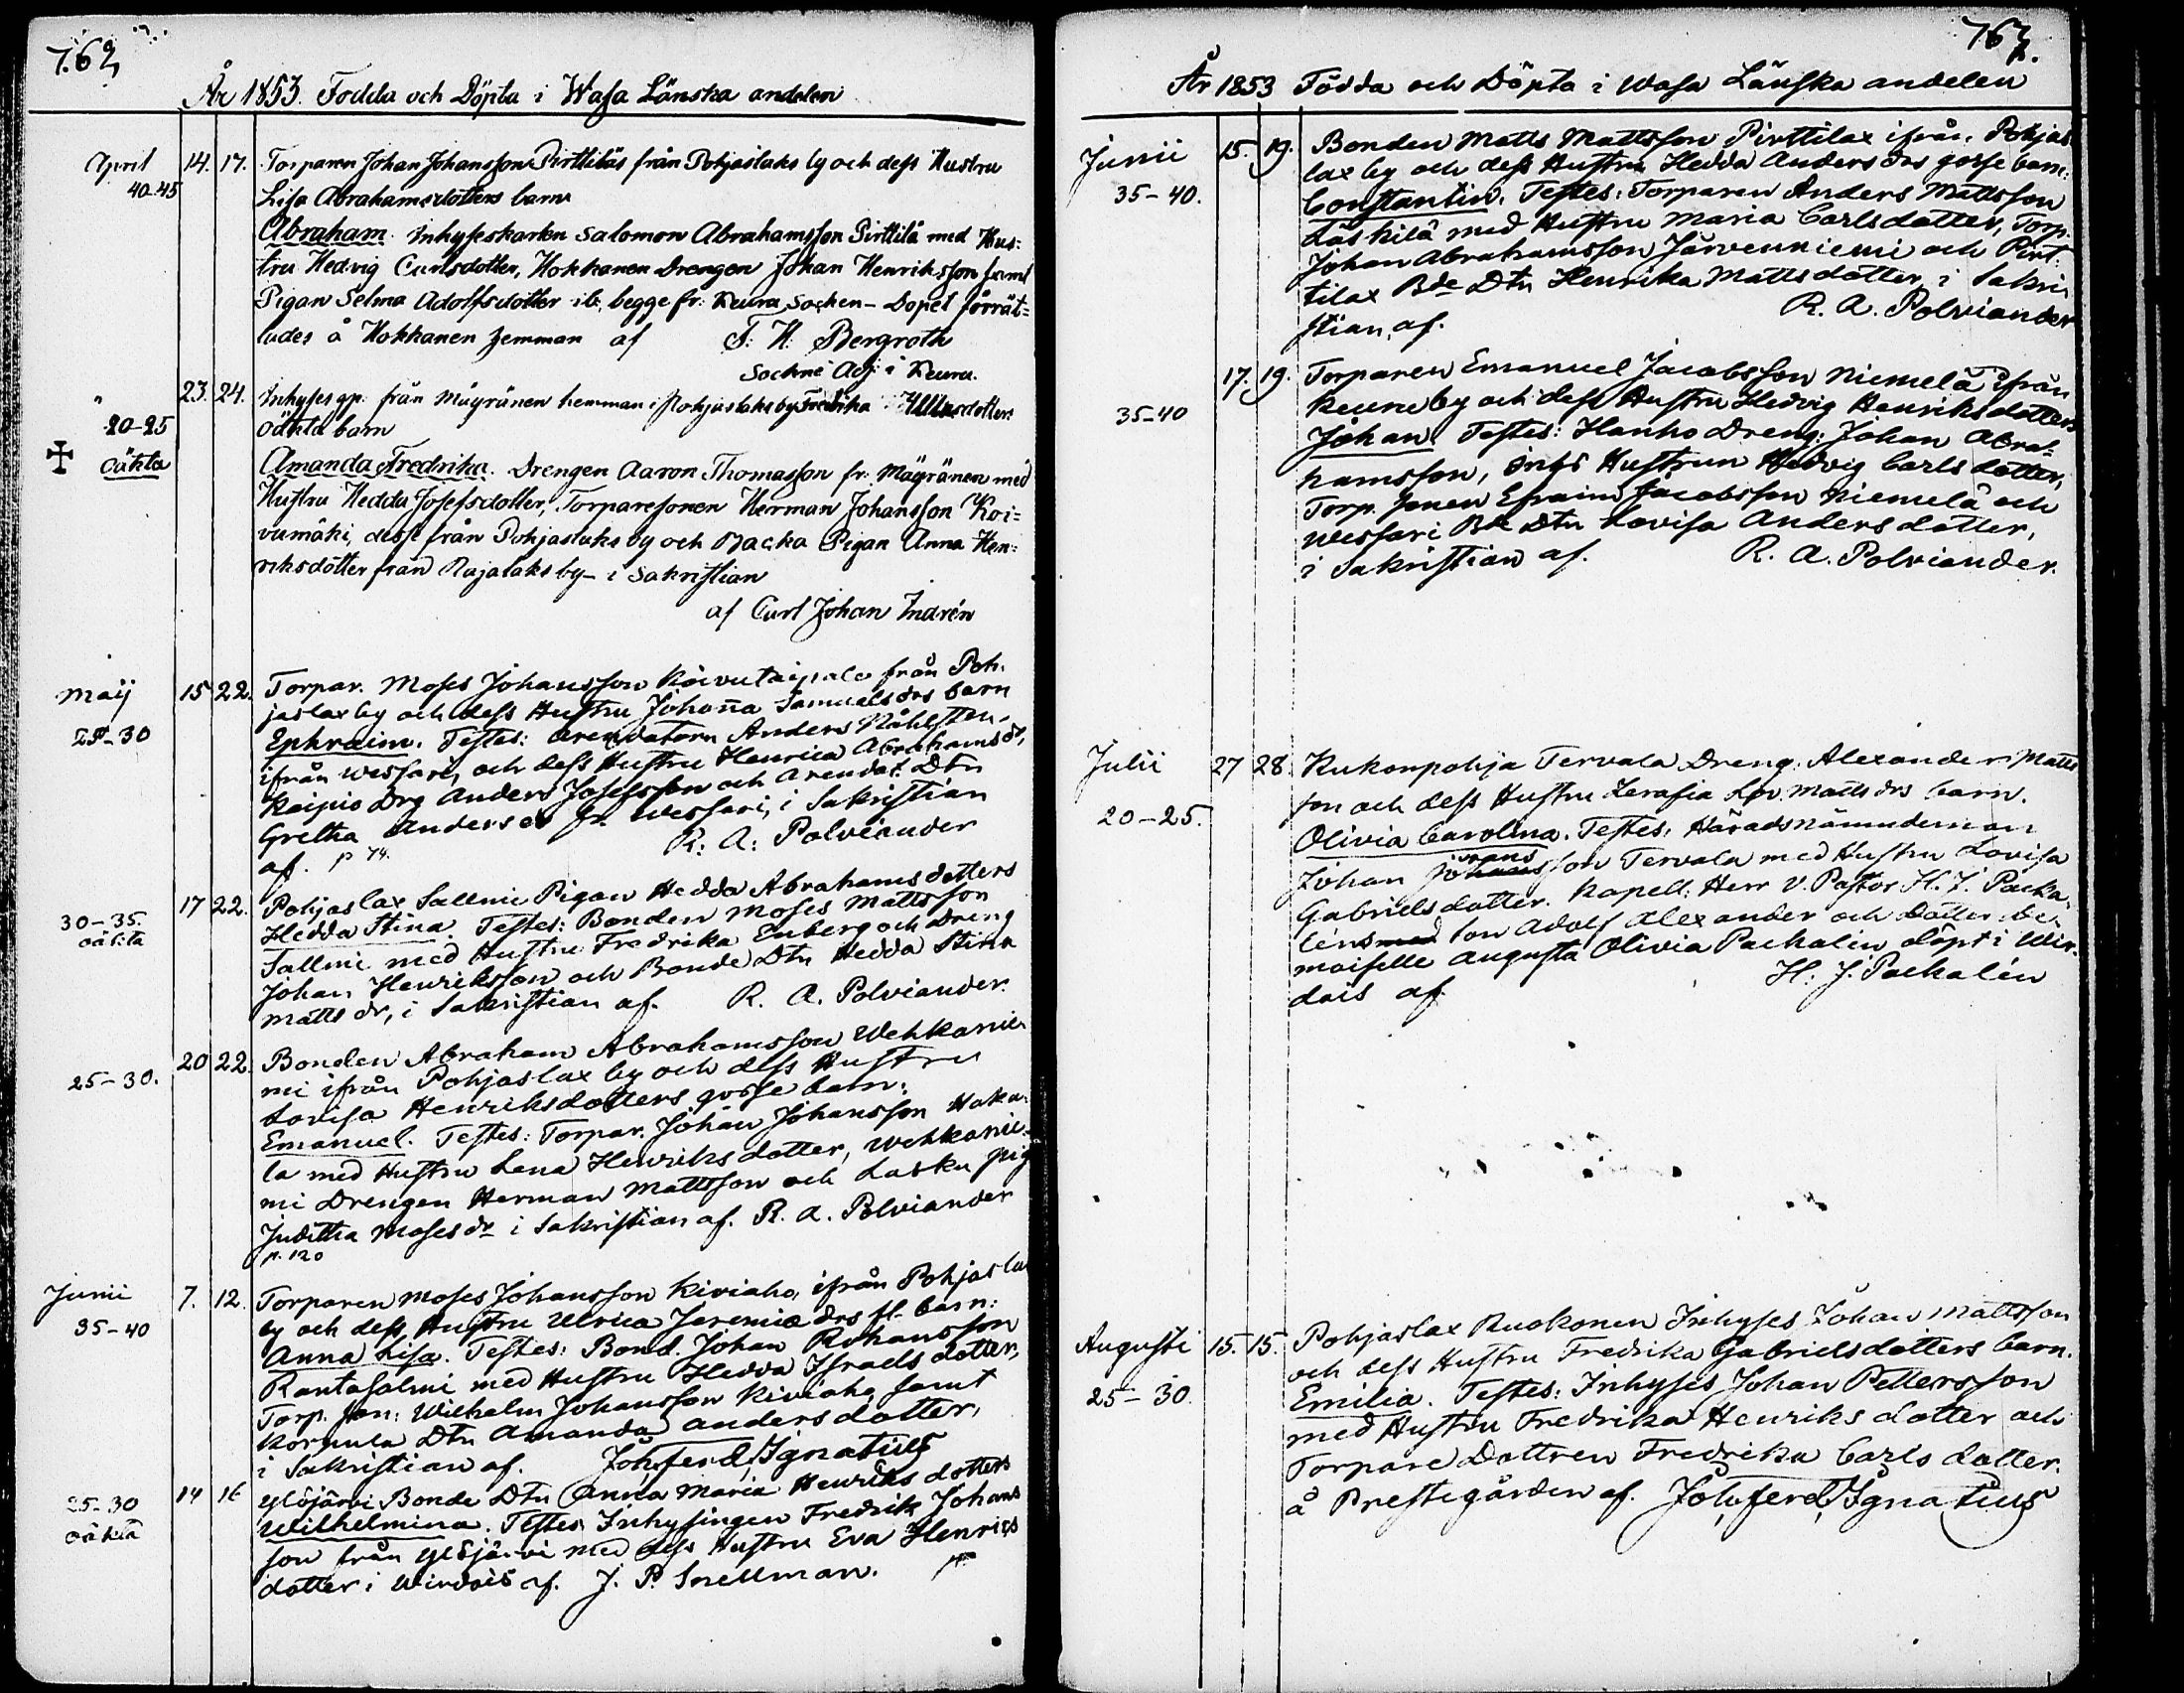 7.62
År 1853. Fodda och Döpta i Wasa Länska andelen
April 14. 17. Torparen Johan Johansson Pirttiläs från Pohjaslaks by och dess Hustru
40-45 Lisa Abrahamsdotters barn
Abraham. Inhyseskarlen Salomon Abrahamsson Pirttilä med Hus:
tru Hedvig Carlsdotter, Hokkanen Drengen Johan Henriksson samt
Pigan Selma Adolfsdotter ib. begge fr: Keuru Socken - Dopet förrät=
tades å Hokkanen hemman af F. H. Bergroth
Sockne Adj: i Keuru.
" 23. 24. Inhyses gp. från Mägränen hemman i Pohjaslaks by Fredrika dotters
20-25 oäkta barn
oäkta Amanda Fredrika. Drengen Aaron Thomasson fr. Mägränen med
Hustru Hedda Josefsdotter, Torparesonen Herman Johansson Koi=
vumäki, desse från Pohjaslaks by och Backa Pigan Anna Hen:
riksdotter från Rajalaks by - i Sakristian
af Carl Johan Indrén
Maij 15 22. Torpar. Moses Johansson Koivutaipale från Poh.
25-30 jaslax by och dess Hustru Johan̄a Samuelsdrs barn
Ephraim. Testes: arendatorn Anders Nåhlsten
ifrån Wessari, och dess Hustru Henrica Abrahamsdr,
Kaipio Drg Anders Josefsson och Arendat. Dtn
Gretha Andersdr fr. Wessari, i Sakristian
af. p 74. R. A. Polviander
30-35 17 22. Pohjaslax Sallmi Pigan Hedda Abrahamsdotters
oäkta Hedda Stina. Testes: Bonden Moses Mattsson
Sallmi med Hustru Fredrika Enberg och Dreng
Johan Henriksson och Bonde Dtn Hedda Stina
Matts dr, i Sakristian af. R. A. Polviander.
20 22. Bonden Abraham Abrahamsson Wehkanie
25-30. mi ifrån Pohjaslax by och dess Hustru
Lovisa Henriksdotters gosse barn:
Emanuel. Testes: Torpar. Johan Johansson Haka:
la med Hustru Lena Henriksdotter, Wehkanie-
mi Drengen Herman Mattsson och Lasku pig
Juditha Mosesdr i Sakristian af. R. A. Polviander
p. 120
Junii 7. 12. Torparen Moses Johansson Kiviaho, ifrån Pohjaslax
35-40 by och dess Hustru Ulrica Jeremiædrs fl. barn:
Anna Lisa. Testes: Bond. Johan Rohansson
Rantasalmi med Hustru Hedda Israelsdotter,
Torp. son: Wilhelm Johansson Kiviaho samt
Korpula Dtn Amanda Andersdotter,
i Sakristian af. Joh. ferd. Ignatius
25-30 14 16 Ylöjärvi Bonde Dtn Anna Maria Henriksdotters
oäkta Wilhelmina. Testes Inhysingen Fredrik Johans
son från Ylöjärvi med dess Hustru Eva Henriks
dotter i Wirdois af. J. P. Snellman.
767.
År 1853 Födda och Döpta i Wasa Länska andelen
Junii 15. 19. Bonden Matts Mattsson Pirttilax ifrån Pohjas
35-40. lax by och dess Hustru Hedda Andersdrs gosse barn:
Constantin. Testes: Torparen Anders Mattsson
Läskilä med Hustru Maria Carlsdotter, Torp.
Johan Abrahamsson Järvenniemi och Pirt:
tilax Bde Dtn Henrika Mattsdotter, i Sakri
stian, af. R. A. Polviander
17. 19. Torparen Emanuel Jacobsson Niemelä ifrån
35-40 Keuru by och dess Hustru Hedvig Henriksdotters
Johan. Testes: Hanho Dreng: Johan Abra-
hamsson, Hustrun Hedvig Carlsdotter,
Torp. sonen Efraim Jacobsson Niemelä och
Wessari Bde Dtn Lovisa Andersdotter,
i Sakristian af. R. A. Polviander.
Julii 27 28. Kukonpohja Tervala Dreng: Alexander Matts
20-25. son och dess Hustru Serafia Lov. Mattsdrs barn.
Olivia Carolina. Testes, Häradsnämndeman
Johan Johansson Tervala med Hustru Lovisa
Gabrielsdotter. Kapell: Herr V. Pastor H. J. Packa
léns med son Adolf Alexander och Dotter: De
moiselle Augusta Olivia Packalén döpt i Wir.
dois af. H. J. Packalén
Augusti 15. 15. Pohjaslax Ruokonen Inhyses Johan Mattsson
25-30. och dess Hustru Fredrika Gabrielsdotters barn.
Emilia. Testes: Inhyses Johan Pettersson
med Hustru Fredrika Henriksdotter och
Torpare Dottren Fredrika Carlsdotter.
å Prestegården af. Joh. ferd. Ignatius